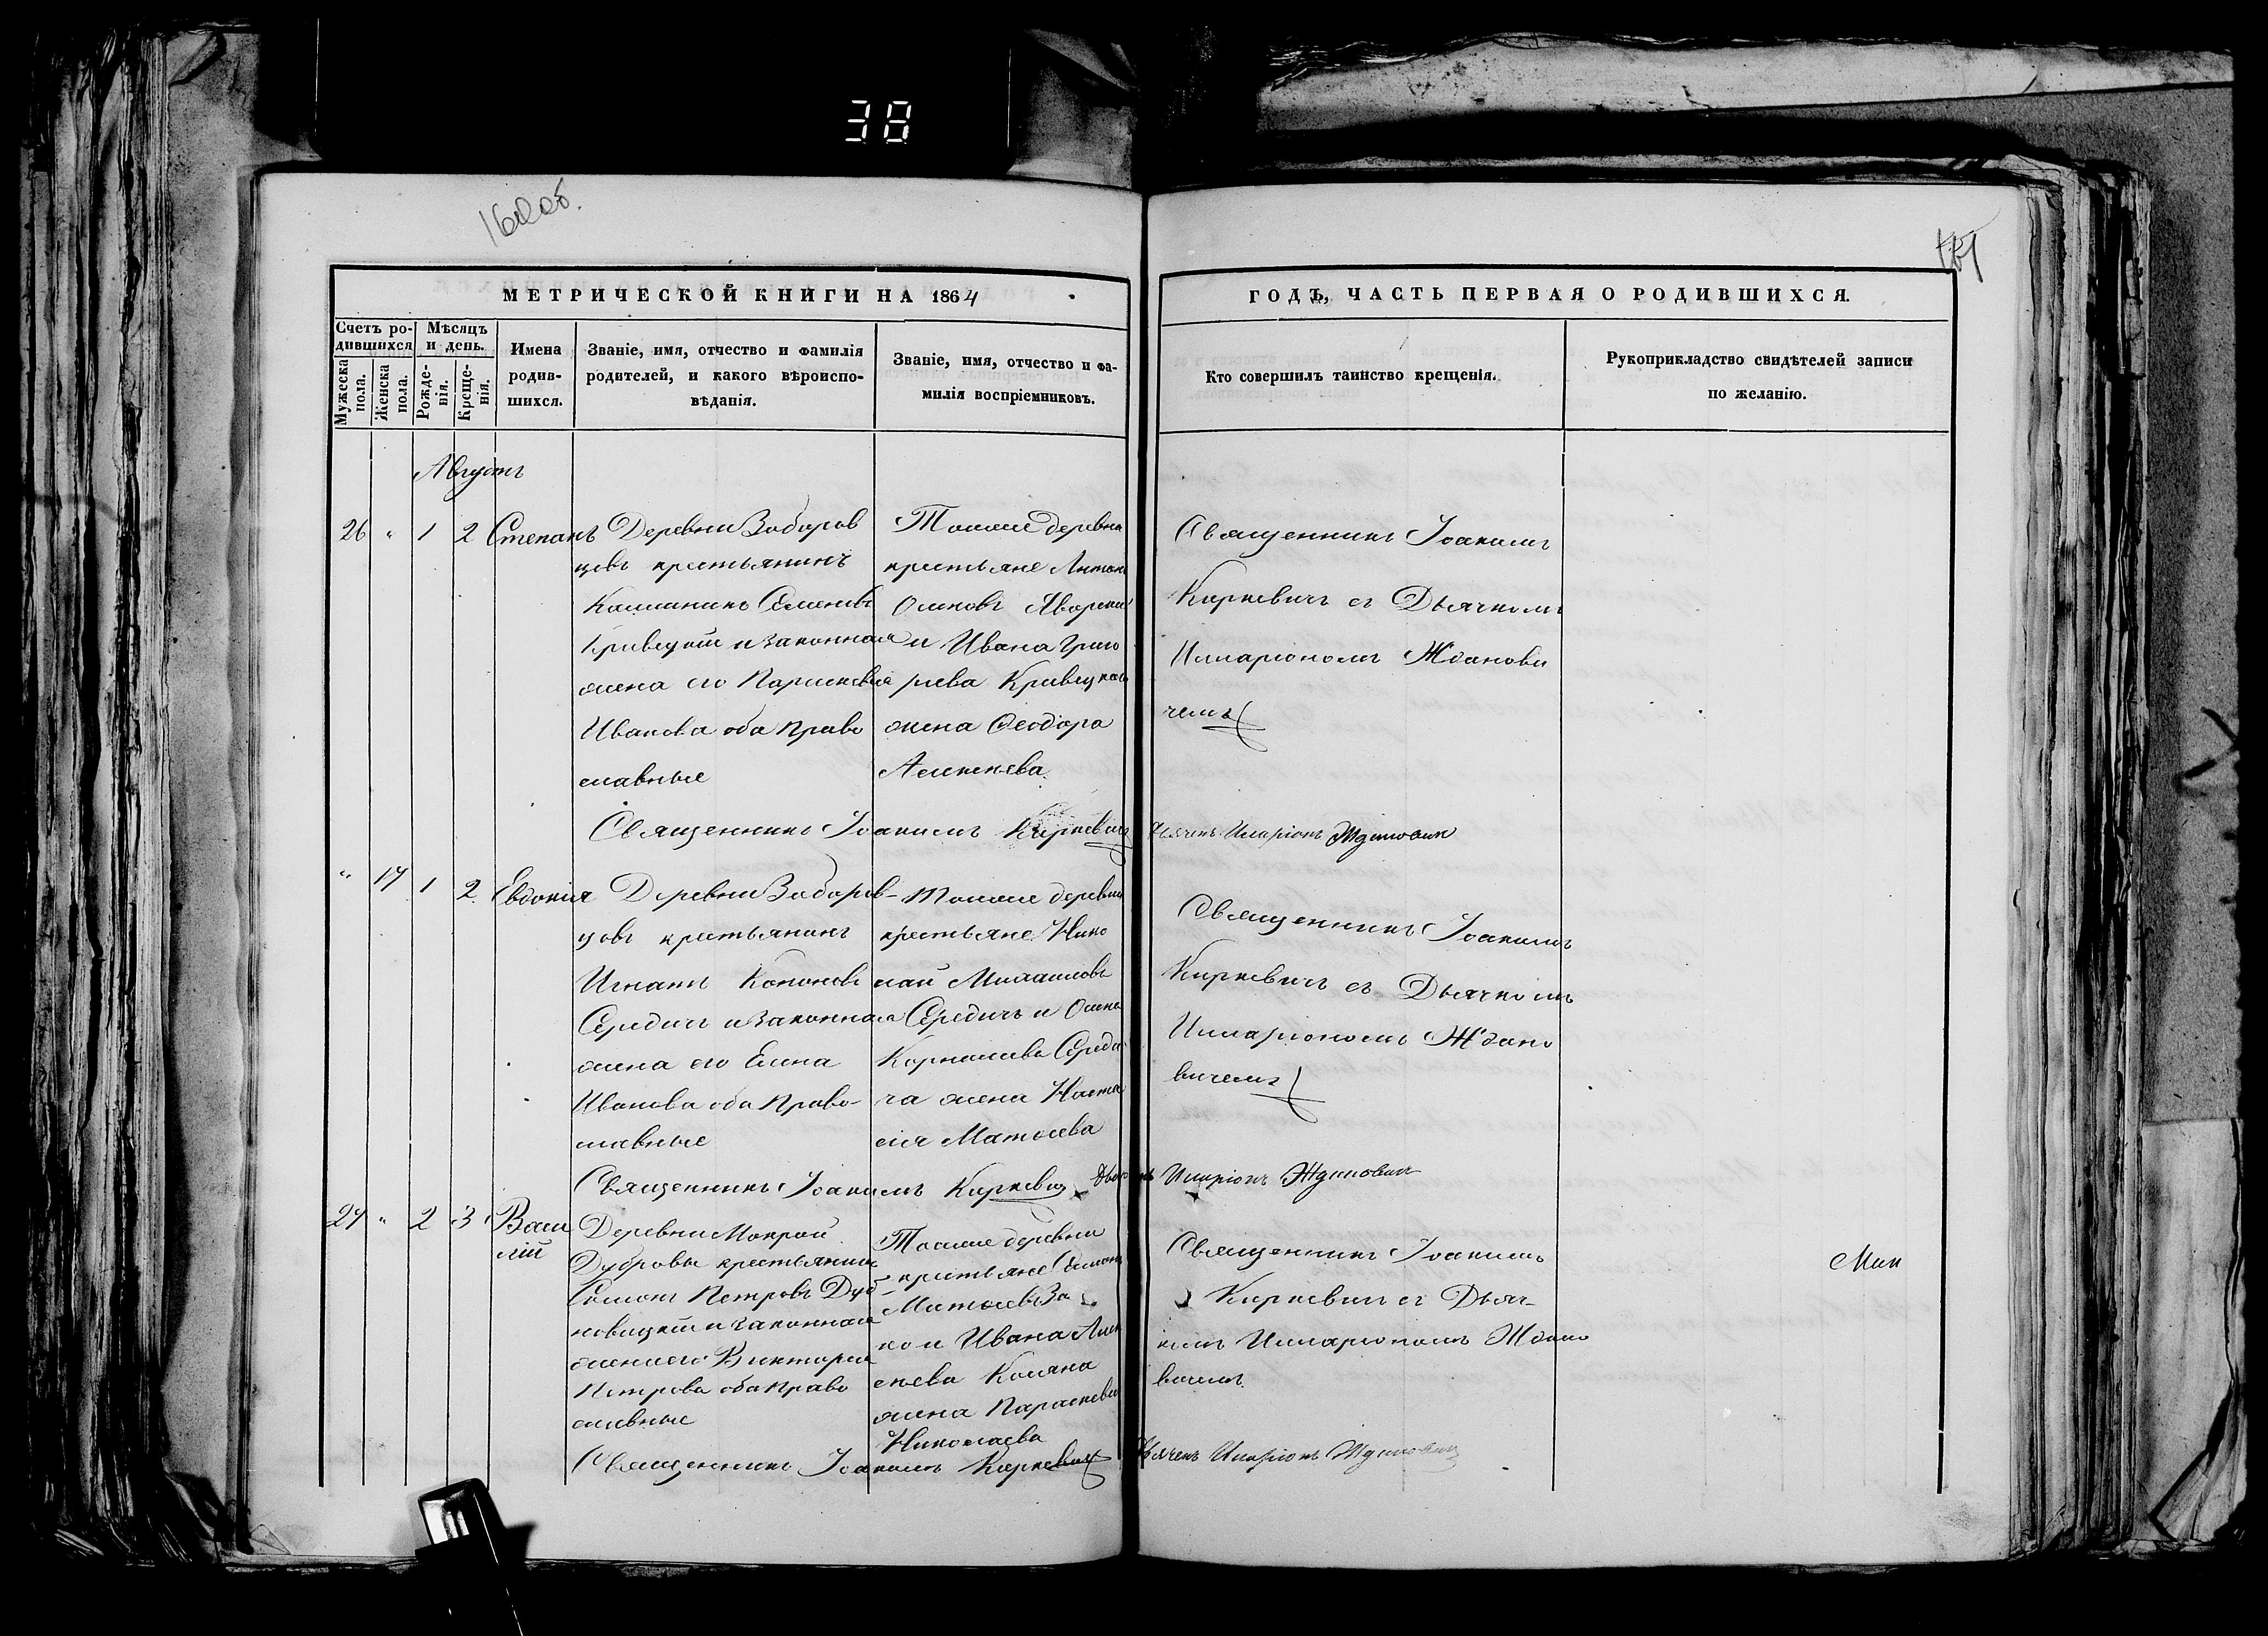 38
160об.
161
МЕТРИЧЕСКОЙ КНИГИ НА 1864
Счетъ ро-
дившихся
Мѣсяцъ
и день.
Мужеска
пола.
Женска
пола.
Рожде-
нія.
Креще-
нія.
Имена
родив-
шихся.
Званіе, имя, отчество и фамилія
родителей, и какого вѣроиспо-
вѣданія.
Званіе, имя, отчество и фа-
милія воспріемниковъ.
ГОДЪ, ЧАСТЬ ПЕРВАЯ О РОДИВШИХСЯ.
Кто совершилъ таинство крещенія.
Рукоприкладство свидѣтелей записи
по желанію.
Августъ
26 " 1 2 Степанъ
Деревни Заборов
цовъ крестьянинъ
Семеновъ
Кривецкій и законная
жена его Парасковія
Ивановa оба право
славные
Тойже деревни
крестьяне Антонъ
и Ивана Григо
рьева Кривецкаго
жена Ѳеодора
Алексѣева
Священникъ Іоакимъ
Киркевичъ съ Дьячкомъ
Илларіономъ Жданови
чемъ
Священникъ Іоакимъ Киркевичъ Дьячекъ Иларіонъ Ждановичъ
" 17 1 2 Евдокія
Деревни Заборов-
цовъ крестьянинъ
Игнатъ Кононовъ
Середичъ и законная
жена его Елена
Иванова оба право-
славные
Тойже деревни
крестьяне Нико
лай Михаиловъ
Середичъ и
Середи
ча жена Наста
сія Матѳеева
Священникъ Іоакимъ
Киркевичъ съ Дьячкомъ
Илларіономъ Ждано
вичемъ
Священникъ Іоакимъ Киркевичъ Дьячекъ Иларіонъ Ждановичъ
27 " 2 3 Васи
лій
Деревни Мокрой
Дубровы крестьянинъ
Петровъ Дуб-
новицкій и законная
жена его Викторія
Петрова оба право
славные
Тойже деревни
крестьяне
Матѳеевъ
ко и Ивана Алек
сѣева
жена Парасковія
Николаева
Священникъ Іоакимъ
Киркевичъ съ Дьяч-
комъ Илларіономъ Ждано
вичемъ
Мин
Священникъ Іоакимъ Киркевичъ Дьячекъ Иларіонъ Ждановичъ